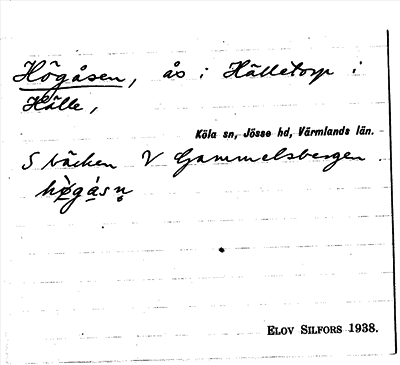 Högåsen, ås i Hälletorp i
Hälle,
Köla sn, Jösse hd, Värmlands län.
S bäcken V Gammelsbergen.
hø̀gásn̥
ELOV SILFORS 1938.